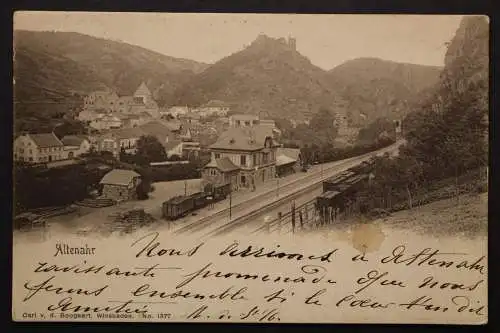 Altenahr
Nous arrivons à Altenahr
ravissante promenade que nous
ferons ensemble si le cœur
Amitiés
Carl v. d. Boogaart, Wiesbaden. No. 1377